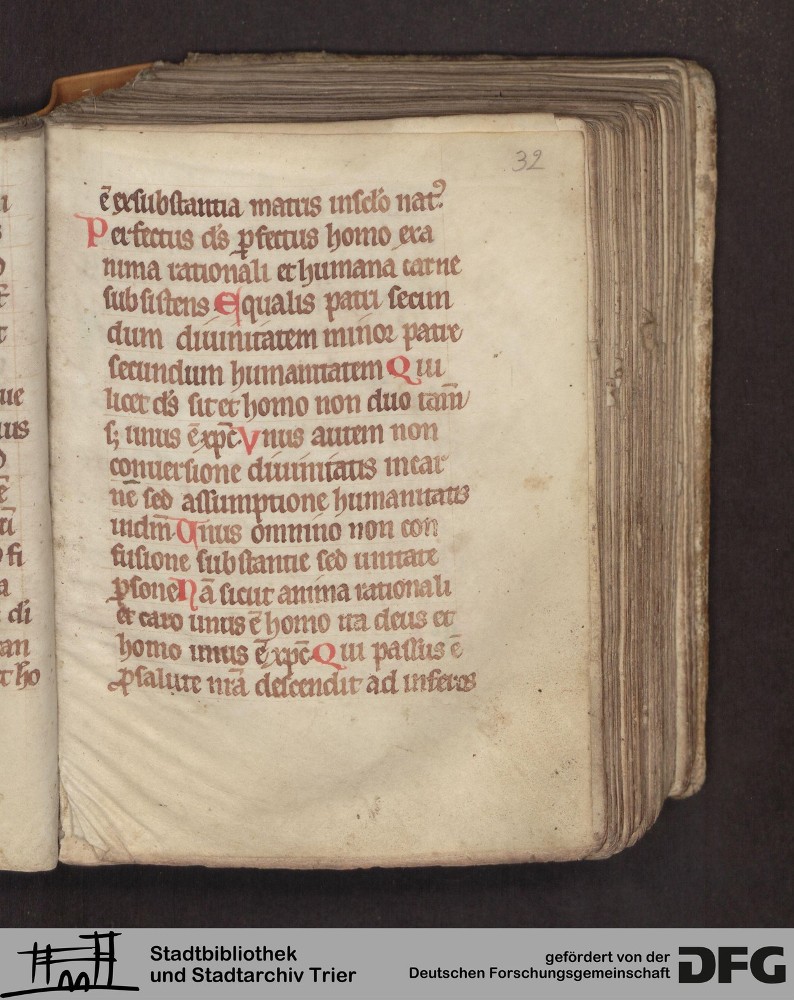 32
ē exsubstantia matris insclo nat⁹.
Perfectus ds ꝑfectus homo exa
nima rationali et humana carne
subsistens Equalis patri secun
dum diuinitatem minor patre
secundum humanitatem Qui
licet ds sit et homo non duo tam̄
s; unus ē xp̄c Vnus autem non
conuersione diuinitatis incar
nē sed assumptione humanitatis
indm̄ Vnus omnino non con
fusione substantie sed unitate
ꝑsone Nā sicut anima rationali
et caro unus ē homo ita deus et
homo unus ē xp̄c Qui passus ē
ꝓ salute nr̄a descendit ad inferos
ue
uis
ē
fi
a
di
an
t ho
Stadtbibliothek
und Stadtarchiv Trier
gefördert von der
Deutschen Forschungsgemeinschaft
DFG